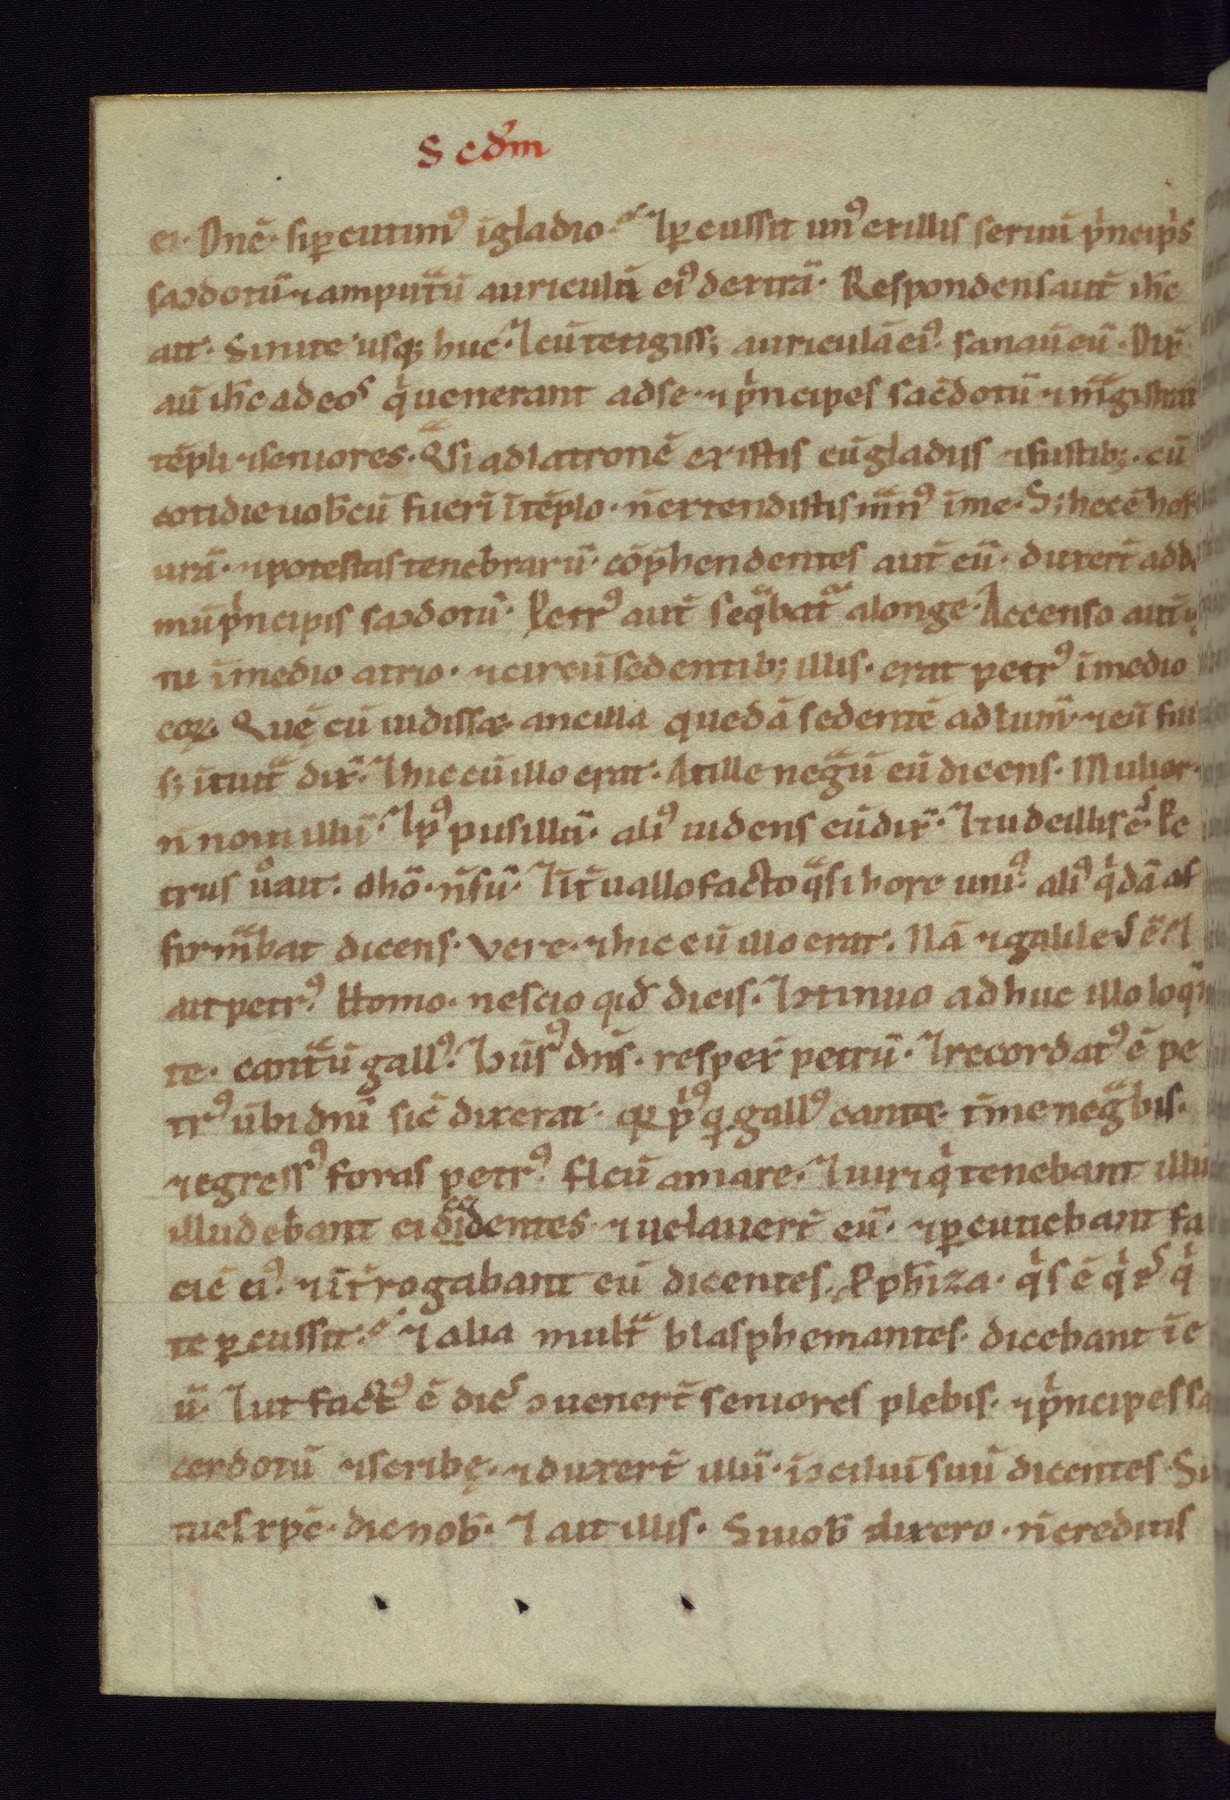 Scd̄m
ei. Dn̄e. si ꝑcutimꝰ ī gladio. ⁊ ꝑcussit unꝰ ex illis seruū pͥncipis
sac̄dotū ⁊ amputᵃū auriculā eiꝰ dextrā. Respondens aut̄ ih̄c
ait. Sinite usq; huc. ⁊ cū tetigiss; auriculā eiꝰ. sanaū eū. Dix̄
aū ih̄c ad eos qͥ uenerant ad se. ⁊ pͥncipes sac̄dotū ⁊ mᵃgistrat
tēpli ⁊ seniores. Qᵃsi ad latronē existis cū gladiis ⁊ fustib;. cū
cotidie uob̄cū fuerī ī tēplo. n̄ extendistis mᵃnꝰ ī me. S; hec ē hor
urā. ⁊ potestas tenebrarū. cōp̄hendentes aut̄ eū. duxer̄t ad do
mū pͥncipis sac̄dotū. Petrꝰ aut̄ seqᵃbat᷑ a longe. Accenso aut̄
tu ī medio atrio. ⁊ circū sedentib; illis. erat petrꝰ ī medio
eoꝝ. Quę cū uidiss& ancilla quedā sedentē ad lum̄. ⁊ eū fui
s; ītuitᵃ dix̄. ⁊ hic cū illo erat. At ille negᵃū eū dicens. Mulier.
n̄ noui illū. ⁊ pꝰ pusillū. aliꝰ uidens eū dix̄. ⁊ tu de illis eˢ. Pe
trus ūº ait. O hō. n̄ sū. ⁊ īt̄uallo facto qᵃsi hore uniꝰ. aliꝰ qͥdā af
firmᵃbat dicens. Vere. ⁊ hic cū illo erat. Nā ⁊ galileˢ ē. ⁊
ait petrꝰ. Homo. nescio qid̄ dicis. ⁊ ꝯtinuo adhuc illo loqᵉn
te. cantᵃū gallꝰ. ⁊ ꝯūsꝰ dn̄s. respex̄ petrū. ⁊ recordatꝰ ē pe
trꝰ ūbi dn̄i sic̄ dixerat. qꝛ pⁱᵘˢq̄ gallꝰ cant&. t̄ me negᵃbis.
⁊ egressꝰ foras petrꝰ. fleū amare. ⁊ uiri qͥ tenebant illū
illudebant ei cędentes ⁊ uelauer̄t eū. ⁊ ꝑcutiebant fa
ciē eiꝰ. ⁊ īt̄rogabant eū dicentes. Ꝓph̄iza. qͥs ē qͥ ē qͥ
te ꝑcussit. ⁊ alia multᵃ blasphemantes. dicebant ī e
ū. ⁊ ut factꝰ ē dieˢ ꝯuener̄t seniores plebis. ⁊ pͥncipes sa
cerdotū ⁊ scribę. ⁊ duxer̄t illū. ī ꝯciliū suū dicentes. Si
tu es xp̄c. dic nob̄. ⁊ ait illis. Si uob̄ dixero. n̄ creditis